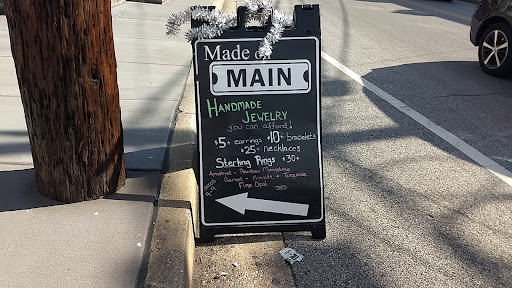 Made on
MAIN
HANDMADE
JEWELRY
you can afford!
$5+ earrings $10+ bracelets
$25+ necklaces
Sterling Rings $30+
Amethyst • Rainbow Moonstone
Garnet • • Turquoise
Fire Opal